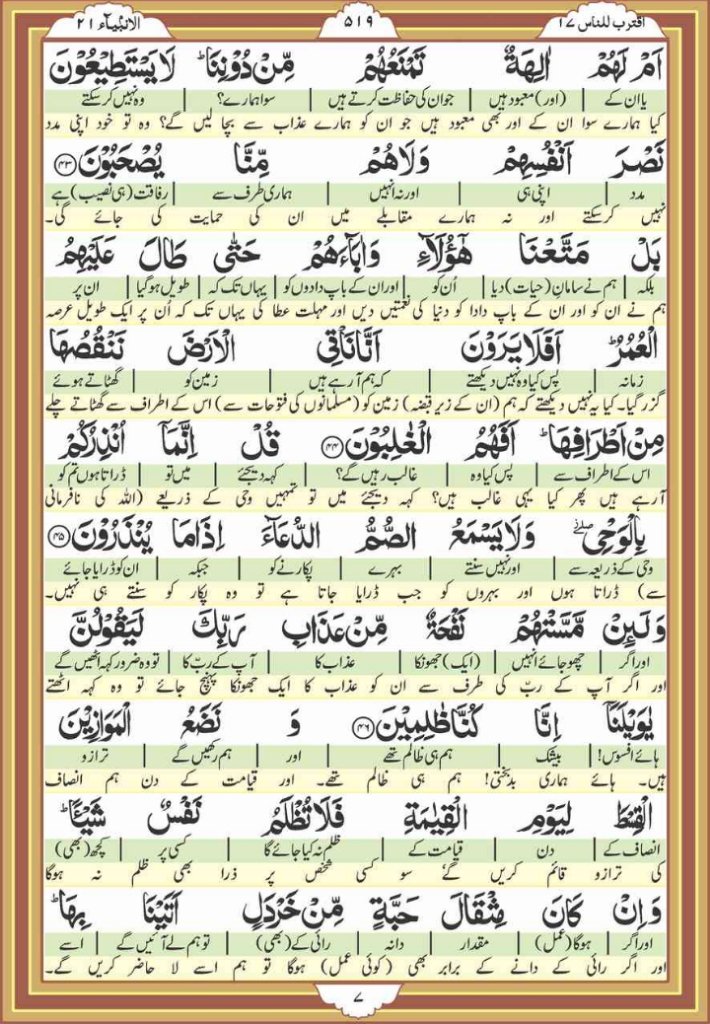 اقترب للناس ۱۷
۵۱۹
الانبیآء ۲۱
اَمْ لَهُمْ اٰلِهَةٌ تَمْنَعُهُمْ مِّنْ دُوْنِنَا ؕ لَا یَسْتَطِیْعُوْنَ
یا ان کے | (اور) معبود ہیں | جو ان کی حفاظت کرتے ہیں | سوا ہمارے؟ | وہ نہیں کر سکتے
کیا ہمارے سوا ان کے اور بھی معبود ہیں جو ان کو ہمارے عذاب سے بچا لیں گے؟ وہ تو خود اپنی مدد
نَصْرَ اَنْفُسِهِمْ وَلَا هُمْ مِّنَّا یُصْحَبُوْنَ ﴿۴۳﴾
مدد | اپنی ہی | اور نہ انہیں | ہماری طرف سے | رفاقت (ہی نصیب) ہے
نہیں کر سکتے اور نہ ہمارے مقابلے میں ان کی حمایت کی جائے گی۔
بَلْ مَتَّعْنَا هٰۤؤُلَآءِ وَاٰبَآءَهُمْ حَتّٰی طَالَ عَلَیْهِمُ
بلکہ | ہم نے سامانِ (حیات) دیا | اُن کو | اور ان کے باپ دادوں کو | یہاں تک کہ | طویل ہو گیا | ان پر
ہم نے ان کو اور ان کے باپ دادا کو دنیا کی نعمتیں دیں اور مہلت عطا کی یہاں تک کہ اُن پر ایک طویل عرصہ
الْعُمُرُ ؕ اَفَلَا یَرَوْنَ اَنَّا نَاْتِی الْاَرْضَ نَنْقُصُهَا
زمانہ | پس کیا وہ نہیں دیکھتے | کہ ہم آ رہے ہیں | زمین کو | گھٹاتے ہوئے
گزر گیا۔ کیا یہ نہیں دیکھتے کہ ہم (ان کے زیر قبضہ) زمین کو (مسلمانوں کی فتوحات سے) اس کے اطراف سے گھٹاتے چلے
مِنْ اَطْرَافِهَا ؕ اَفَهُمُ الْغٰلِبُوْنَ ﴿۴۴﴾ قُلْ اِنَّمَاۤ اُنْذِرُكُمْ
اس کے اطراف سے | پس کیا وہ | غالب رہیں گے؟ | کہہ دیجئے | میں تو | ڈراتا ہوں تم کو
آ رہے ہیں پھر کیا یہی غالب ہیں؟ کہہ دیجئے میں تو تمہیں وحی کے ذریعے (اللہ کی نافرمانی
بِالْوَحْیِ ۖؗ وَلَا یَسْمَعُ الصُّمُّ الدُّعَآءَ اِذَا مَا یُنْذَرُوْنَ ﴿۴۵﴾
وحی کے ذریعہ سے | اور نہیں سنتے | بہرے | پکارنے کو | جبکہ | ان کو ڈرایا جائے
سے) ڈراتا ہوں اور بہروں کو جب ڈرایا جاتا ہے تو وہ پکار کو سنتے ہی نہیں۔
وَلَئِنْ مَّسَّتْهُمْ نَفْحَةٌ مِّنْ عَذَابِ رَبِّكَ لَیَقُوْلُنَّ
اور اگر | چھو جائے انہیں | (ایک) جھونکا | عذاب کا | آپ کے ربّ کا | تو وہ ضرور کہہ اٹھیں گے
اور اگر آپ کے ربّ کی طرف سے ان کو عذاب کا ایک جھونکا پہنچ جائے تو وہ کہہ اٹھتے
یٰوَیْلَنَاۤ اِنَّا كُنَّا ظٰلِمِیْنَ ﴿۴۶﴾ وَ نَضَعُ الْمَوَازِیْنَ
ہائے افسوس! | بیشک | ہم ہی ظالم تھے | اور | ہم رکھیں گے | ترازو
ہیں۔ ہائے ہماری بدبختی! ہم ہی ظالم تھے۔ اور قیامت کے دن ہم انصاف
الْقِسْطَ لِیَوْمِ الْقِیٰمَةِ فَلَا تُظْلَمُ نَفْسٌ شَیْـًٔا ؕ
انصاف کے | دن | قیامت کے | ظلم نہ کیا جائے گا | کسی پر | کچھ (بھی)
کی ترازو قائم کریں گے سو کسی شخص پر ذرا بھی ظلم نہ ہوگا
وَاِنْ كَانَ مِثْقَالَ حَبَّةٍ مِّنْ خَرْدَلٍ اَتَیْنَا بِهَا ؕ
اور اگر | ہوگا (عمل) | مقدار | دانہ | رائی کے (بھی) | تو ہم لے آئیں گے | اسے
اور اگر رائی کے دانے کے برابر بھی (کوئی عمل) ہوگا تو ہم اسے لا حاضر کریں گے۔
۷